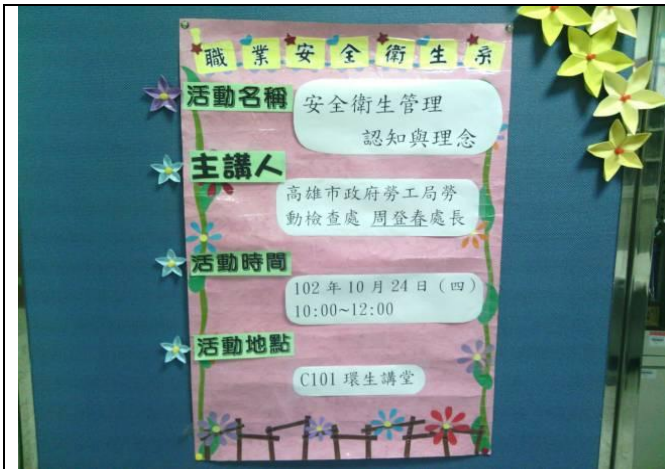 職業安全衛生系
活動名稱
安全衛生管理
認知與理念
主講人
高雄市政府勞工局勞
動檢查處 周登春處長
活動時間
102年10月24日(四)
10:00~12:00
活動地點
C101 環生講堂